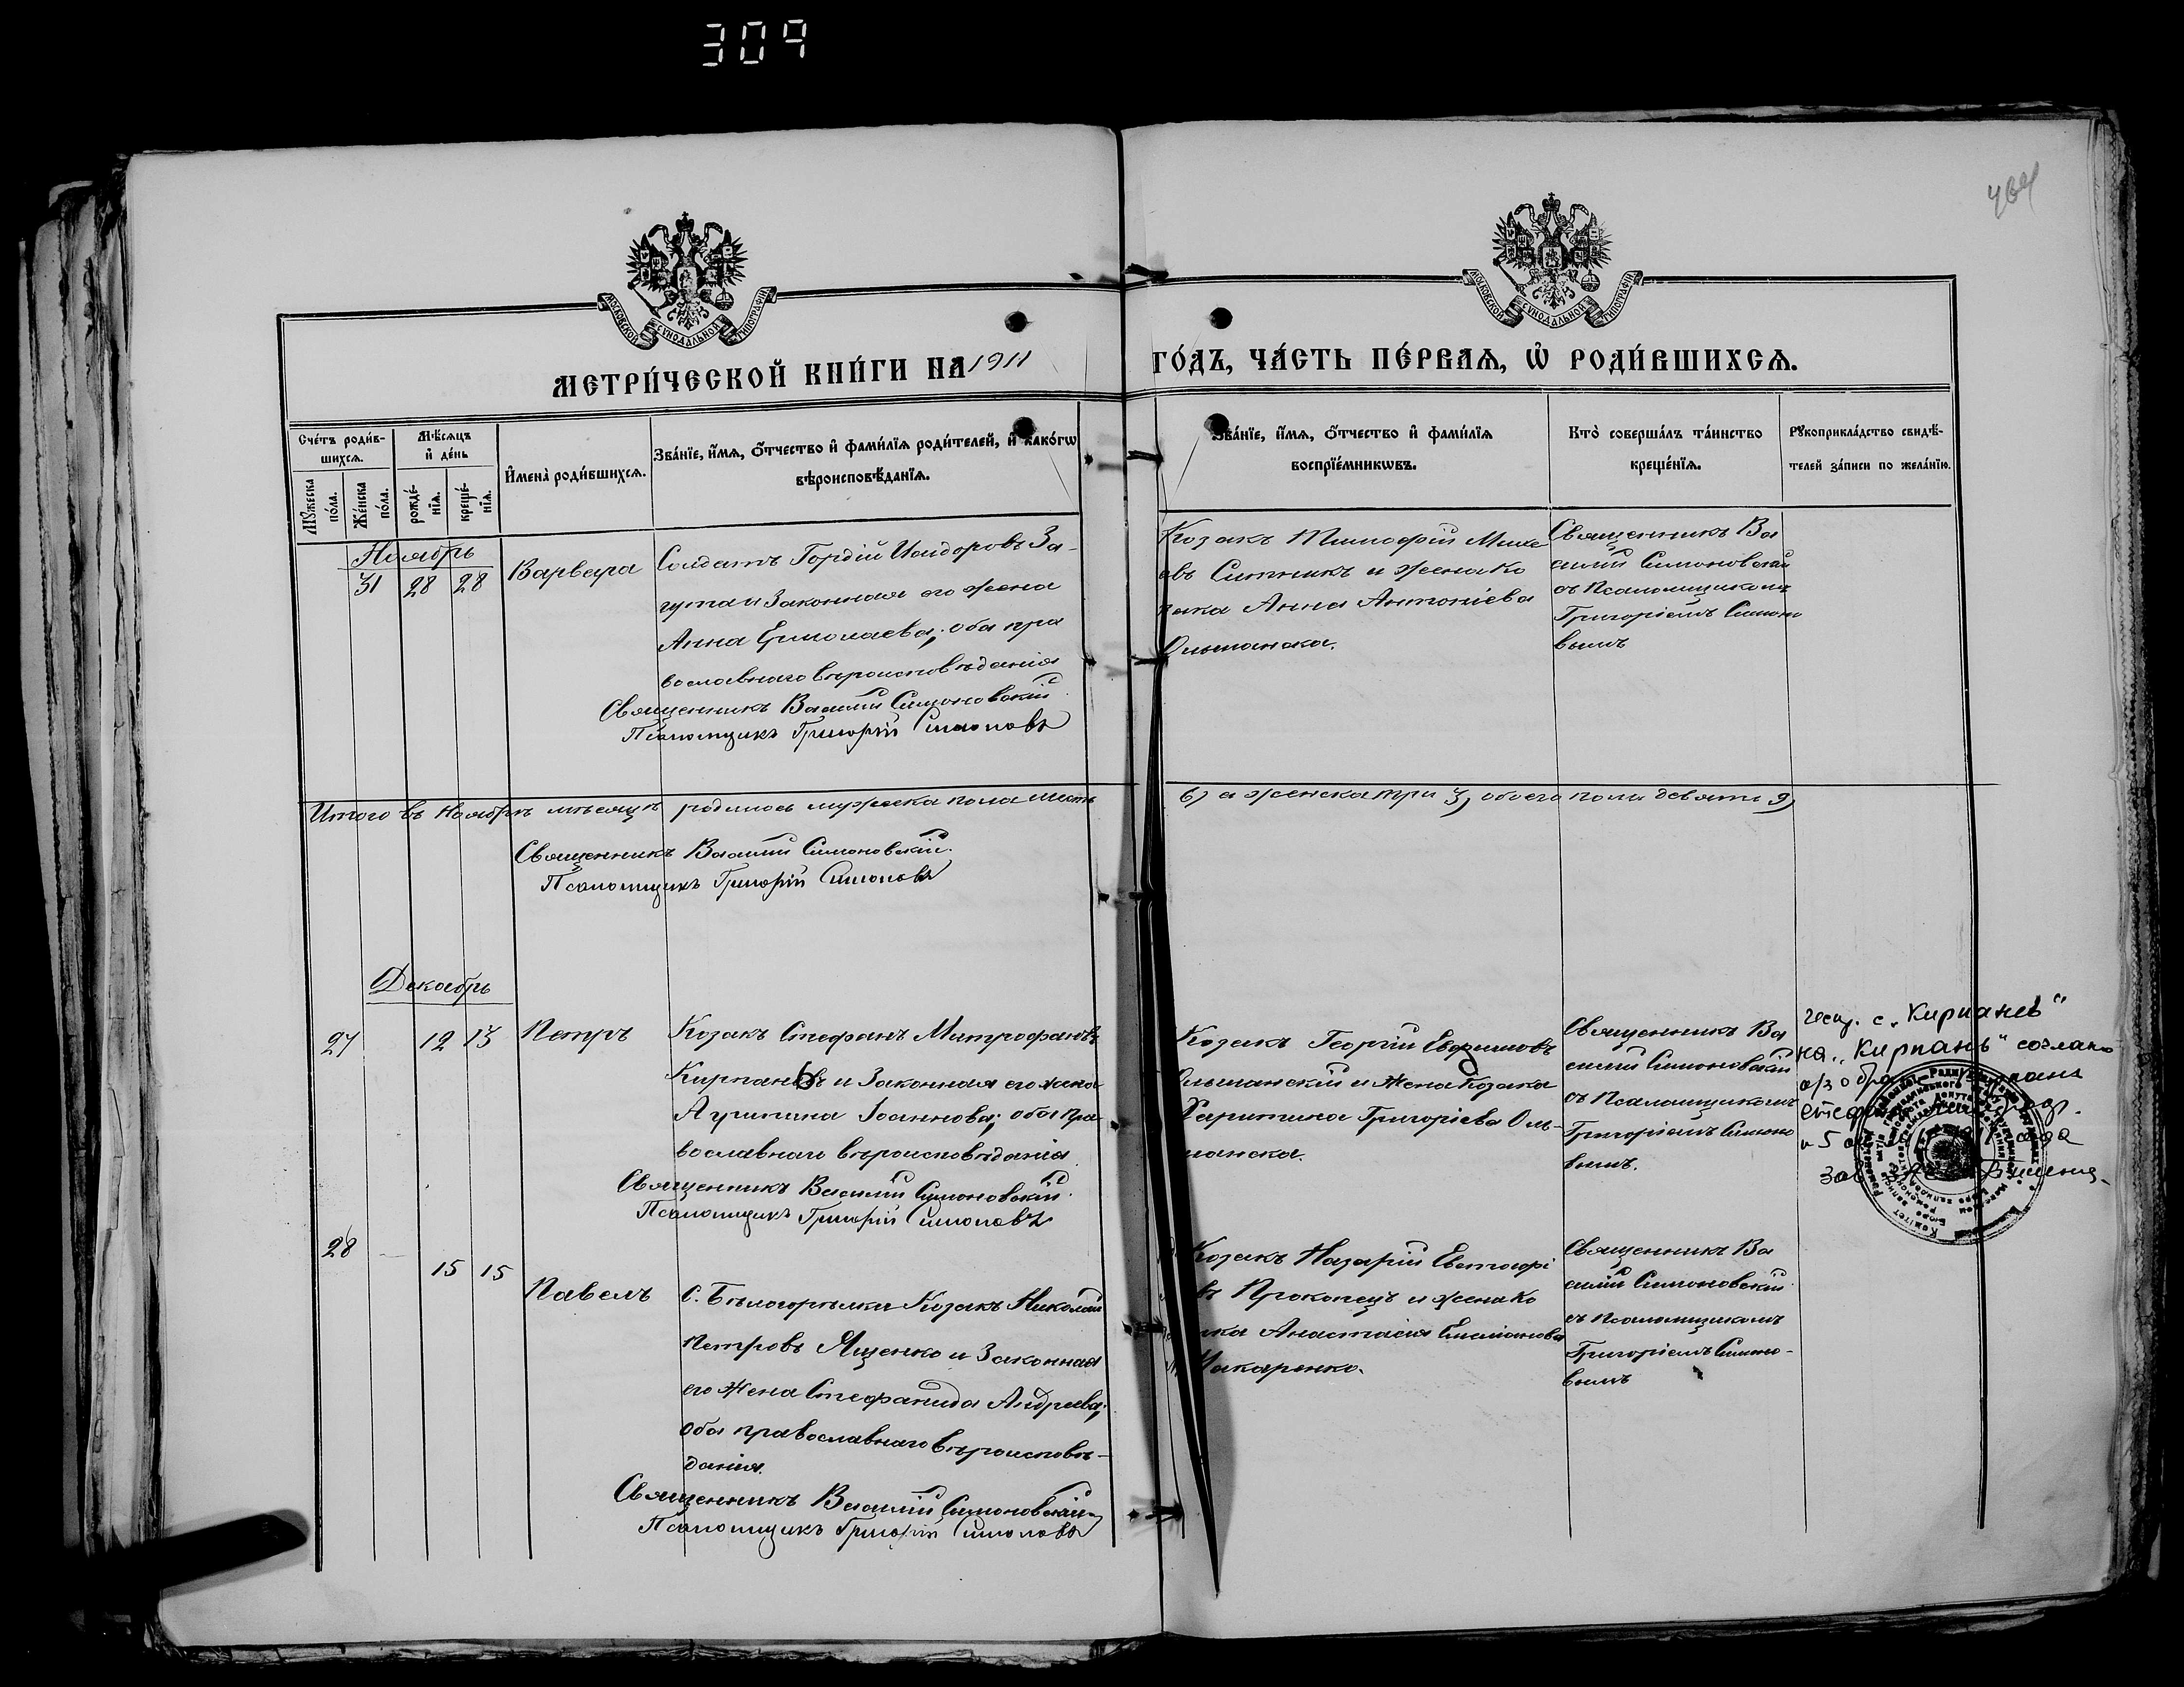 309
464
МОСКОВСКОЙ СѴНОДАЛЬНОЙ ТИПОГРАФІИ
МОСКОВСКОЙ СѴНОДАЛЬНОЙ ТИПОГРАФІИ
МЕТРИ́ЧЕСКОЙ КНИ́ГИ НА 1911
ГО́ДЪ, ЧА́СТЬ ПЕ́РВАѦ, Ѡ҆ РОДИ́ВШИХСѦ.
Сче́тъ роди́в-
шихсѧ.
Мꙋжеска по́ла.
Же́нска по́ла.
Мѣ́сѧцъ
и҆ де́нь
рожде́-
нїѧ.
креще́-
нїѧ.
И҆мена̀ роди́вшихсѧ.
Зва́нїе, и҆́мѧ, ѻ҆́тчество и҆ фами́лїѧ роди́телей, и҆ како́гѡ
вѣроисповѣ́данїѧ.
Зва́нїе, и҆́мѧ, ѻ҆́тчество и҆ фами́лїѧ
воспрїе́мникѡвъ.
Кто̀ соверша́лъ та́инство
креще́нїѧ.
Рꙋкоприкла́дство свидѣ́-
телей за́писи по жела́нїю.
Ноябрь
31 28 28 Варвара
Солдатъ Гордій Исидоровъ За-
гута и Законная его жена
Анна Ермолаева; оба пра
вославнаго вѣроисповѣданія
Священникъ Василій Симоновскій
Псаломщикъ Григорій Симоновъ
Козакъ Тимофій Михе
евъ Ситникъ и жена Ко
зака Анна Антоніева
Ольшанска.
Священникъ Ва
силій Симоновскій
съ Псаломщикомъ
Григоріемъ Симоно
вымъ
Итого въ Ноябрѣ мѣсяцѣ родилось мужеска пола шесть 6) а женска три 3) обоего пола девять 9)
Священникъ Василій Симоновскій.
Псаломщикъ Григорій Симоновъ
Декабрь
27 12 13 Петръ
Козакъ Стефанъ Митрофановъ
Кирпаневъ и Законная его жена
Агрипина Іоаннова; оба пра-
вославнаго вѣроисповѣданія
Священникъ Василій Симоновскій.
Псаломщикъ Григорій Симоновъ
Козакъ Георгій Евфимовъ
Ольшанскій и жена Козака
Харитина Григоріева Оль-
шанска.
Священникъ Ва
силій Симоновскій
съ Псаломщикомъ
Григоріемъ Симоно
вымъ.
испр. с „Кирпанев“
на „Кирпань“
28 15 15 Павелъ
С. Бѣлогорѣлки Козакъ Николай
Петровъ Ященко и Законная
его жена Стефанида Андреева;
оба православнаго вѣроисповѣ-
данія.
Священникъ Василій Симоновскій
Псаломщикъ Григорій Симоновъ
Козакъ Назарій
Прокопецъ и жена Ко
Анастасія Емеліанова
Макаренко.
Священникъ Ва
силій Симоновскій
съ Псаломщикомъ
Григоріемъ Симоно-
вымъ